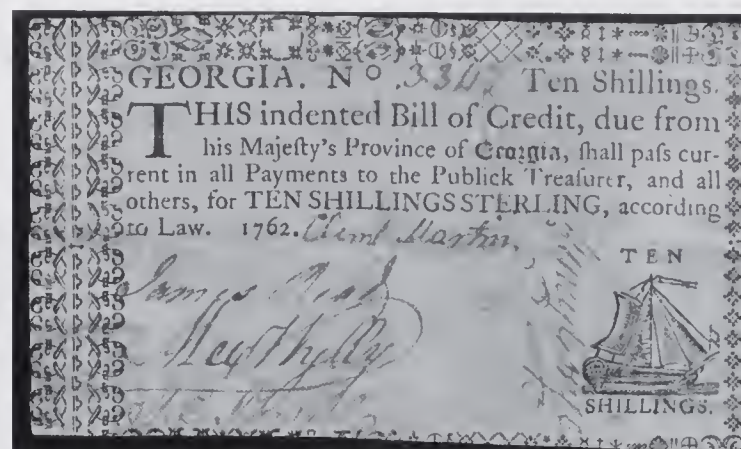 GEORGIA. No. 3342 Ten Shillings.
THIS indented Bill of Credit, due from
his Majeſty's Province of Georgia, ſhall paſs cur-
rent in all Payments to the Publick Treaſurer, and all
others, for TEN SHILLINGS STERLING, according
to Law. 1762. Clemt Martin.
James Read
TEN
SHILLINGS.